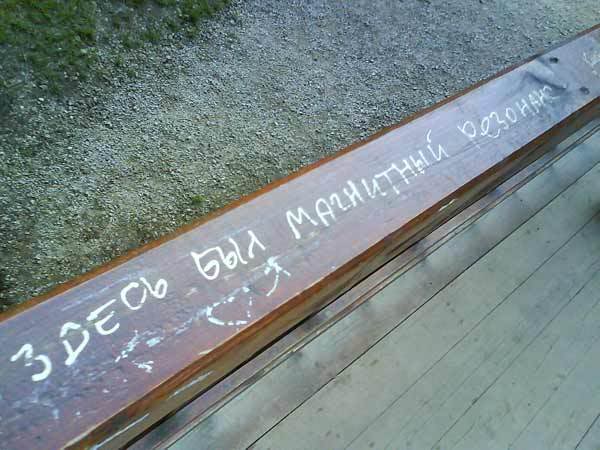 ЗДЕСЬ БЫЛ МАГНИТНЫЙ РЕЗОНАНС